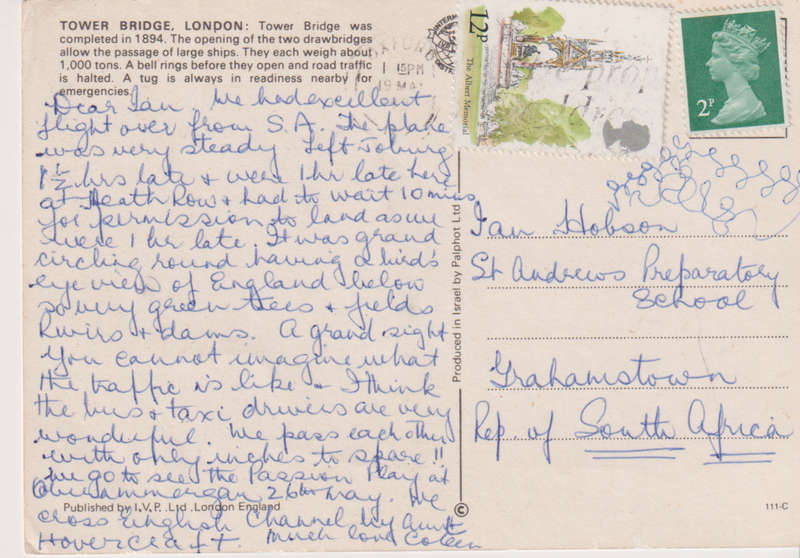 TOWER BRIDGE, LONDON: Tower Bridge was
completed in 1894. The opening of the two drawbridges
allow the passage of large ships. They each weigh about
1,000 tons. A bell rings before they open and road traffic
is halted. A tug is always in readiness nearby for
emergencies.
Dear Ian, We had excellent
flight over from S.A. The plane
was very steady Left Joburg
1½ hrs late & were 1 hr late here
at Heath Row & had to wait 10 mins
for permission to land as we
were 1 hr late. It was grand
circling round having a bird's
eye view of England below
so very green trees & fields
Rivers & dams. A grand sight
You cannot imagine what
the traffic is like & I think
the bus & taxi drivers are very
wonderful. We pass each other
with only inches to spare!!
We go to see the Passion Play at
Oberammergau 26th May. We
cross English Channel by
Hovercraft. Much love Aunt
Published by I.V.P. Ltd. London England
Produced in Israel by Palphot Ltd
©
111-C
12P
The Albert Memorial
2P
1 15PM
19 MAY
Ian Hobson
St Andrews Preparatory
School
Grahamstown
Rep. of South Africa